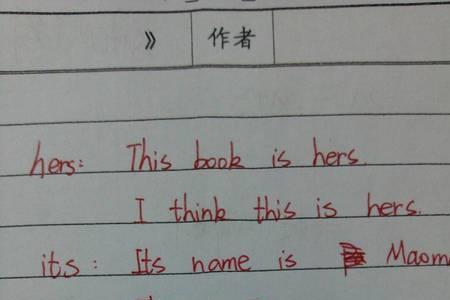 》 作者
hers: This book is hers.
I think this is hers.
its: Its name is